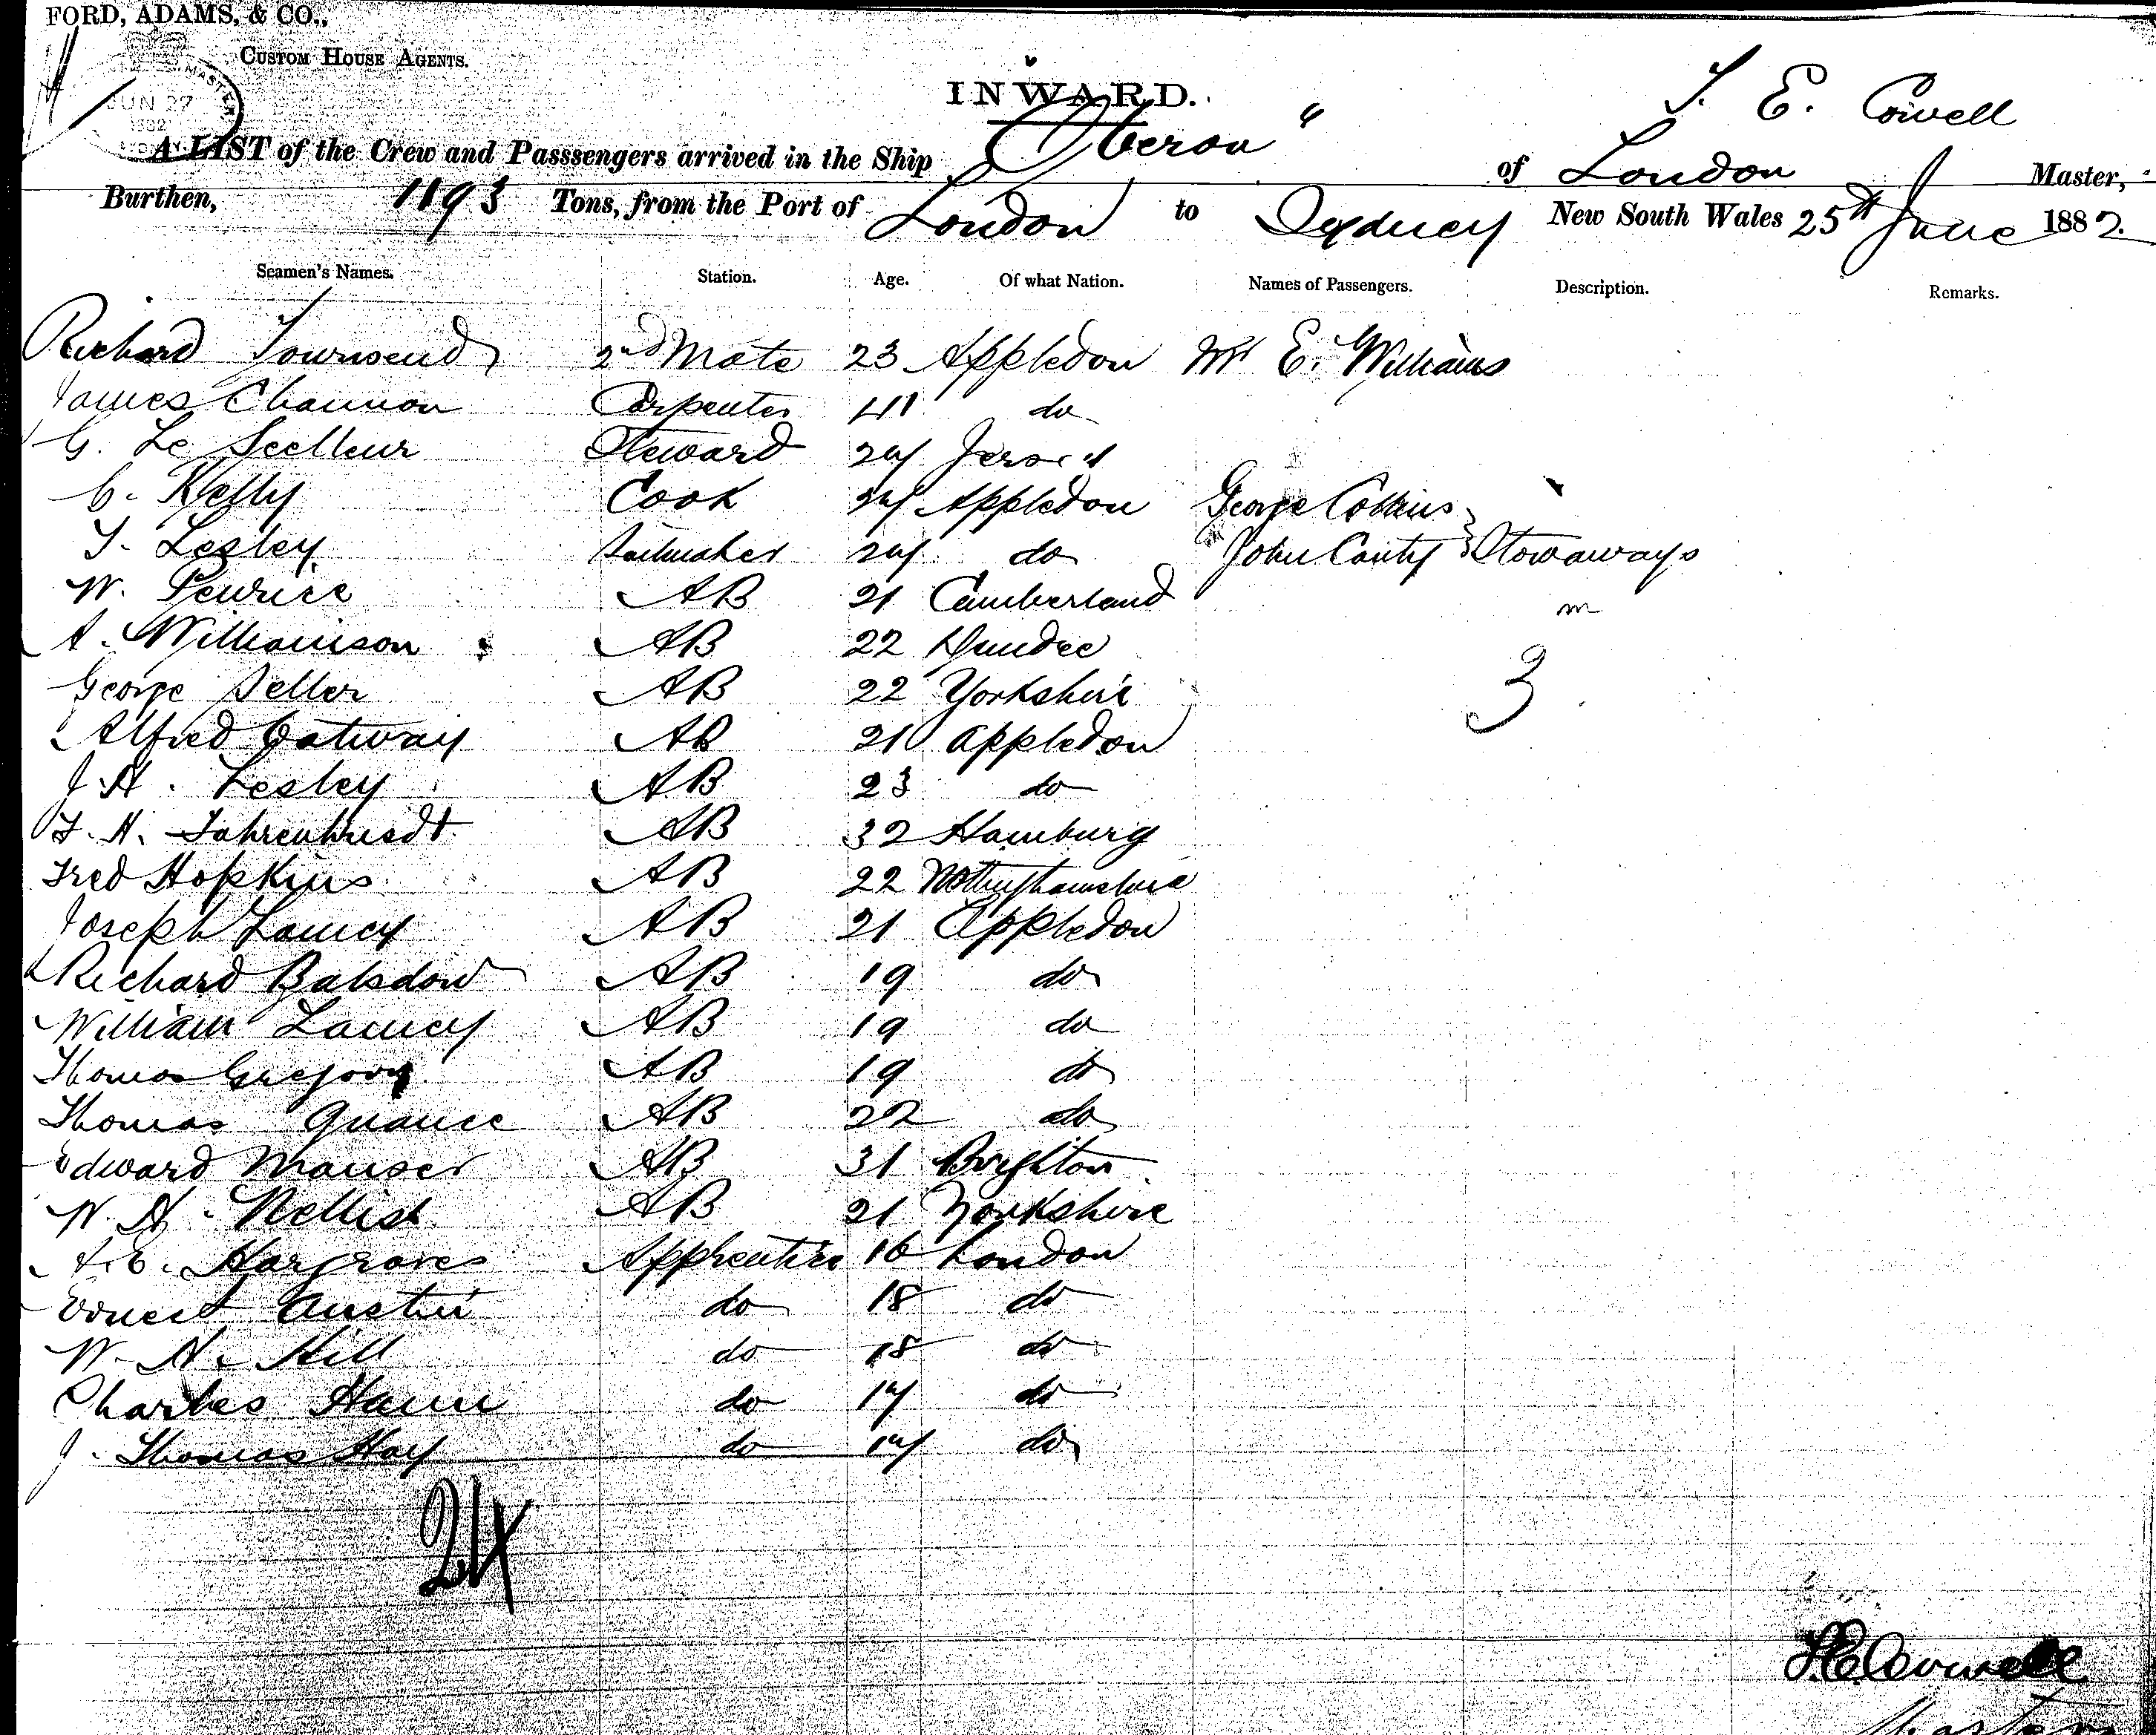 FORD, ADAMS, & CO.,
CUSTOM HOUSE AGENTS.
JUN 27
INWARD.
A LIST of the Crew and Passsengers arrived in the Ship Oberon" of London T. E. Cowell Master,
Burthen, 1193 Tons, from the Port of London to Sydney New South Wales 25th June 1882.
Seamen's Names. Station. Age. Of what Nation. Names of Passengers. Description. Remarks.
Richard Townsend 2nd Mate 23 Appledon Mr E. Williams
James Channon Carpenter 41 do
G. Le Seelleur Steward Jersey
C. Kelly Cook Appledon George Collins
T. Lesley Sailmaker 24 do John Canty Stowaways
W. Penrice AB 21 Cumberland
A. Williamson AB 22 Dundee
George Seller AB 22 Yorkshire 3
Alfred AB 21 Appledon
J. H. Lesley AB 23 do
AB 32 Hamburg
Fred Hopkins AB 22 Nottinghamshire
Joseph Lamey AB 21 Appledon
Richard Balsdon AB 19 do
William Lamey AB 19 do
Thomas Gregory AB 19 do
Thomas Quance AB 22 do
Edward Manser AB 31 Brighton
W. H. Nellist AB 21 Yorkshire
A. E. Hargraves Apprentice 16 London
Ernest Austin do 18 do
W. H. Hill do 18 do
Charles Hann do 17 do
J. Thomas Hay do 17 do
24
T.E. Cowell
Master